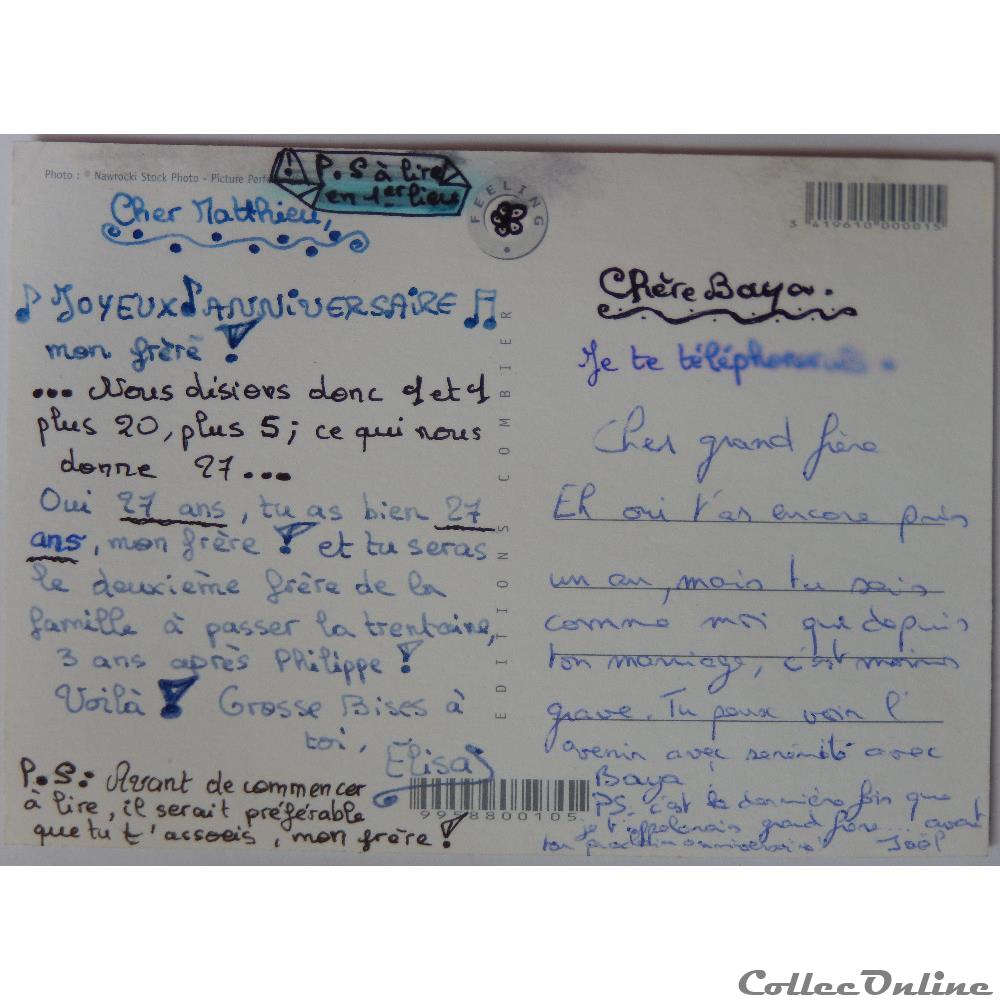 Photo : © Nawrocki Stock Photo - Picture Perf
! P.S à lire
en 1er lieu
FEELING
3 419610 000015
Cher Matthieu,
JOYEUX ANNIVERSAIRE
mon frère !
... Nous disions donc 1 et 1
plus 20, plus 5 ; ce qui nous
donne 27...
Oui 27 ans, tu as bien 27
ans, mon frère ! et tu seras
le deuxième frère de la
famille à passer la trentaine,
3 ans après Philippe !
Voilà ! Grosse Bises à
toi, Elisa
P.S : Avant de commencer
à lire, il serait préférable
que tu t'assois, mon frère !
EDITIONS COMBIER
9958800105
Chère Baya.
Je te téléphonerais.
Cher grand frère
Eh oui t'as encore pris
un an, mais tu sais
comme moi que depuis
ton mariage, c'est moins
grave. Tu peux voir l'
avenir avec sérénité avec
Baya
PS, c'est la dernière fois que
je t'appelerais grand frère... avant
ton prochain anniversaire !
Joël
CollecOnline